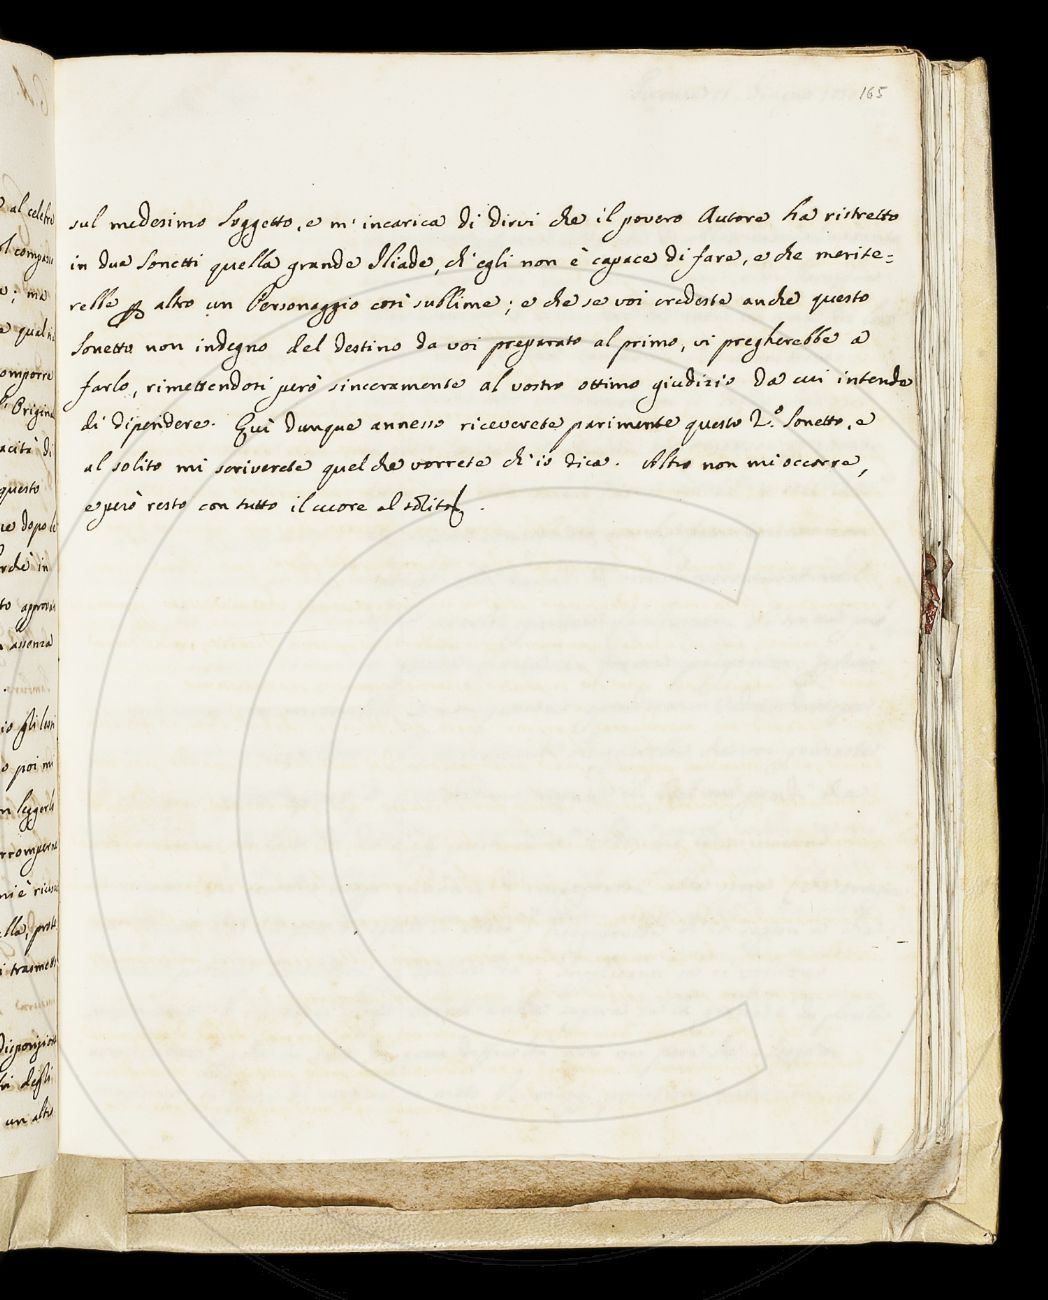 165
sul medesimo soggetto, e m'incarica di dirvi che il povero Autore ha ristretto
in due Sonetti quella grande Iliade, ch'egli non è capace di fare, e che merite=
rebbe altro un Personaggio così sublime; e che se voi credeste anche questo
Sonetto non indegno del destino da voi preparato al primo, vi pregherebbe a
farlo, rimettendosi però sinceramente al vostro ottimo giudizio da cui intende
di dipendere. Quì dunque annesso riceverete parimente questo 2.º Sonetto, e
al solito mi scriverete quel che vorrete ch'io dica. Altro non mi occorre,
e però resto con tutto il cuore al solito.